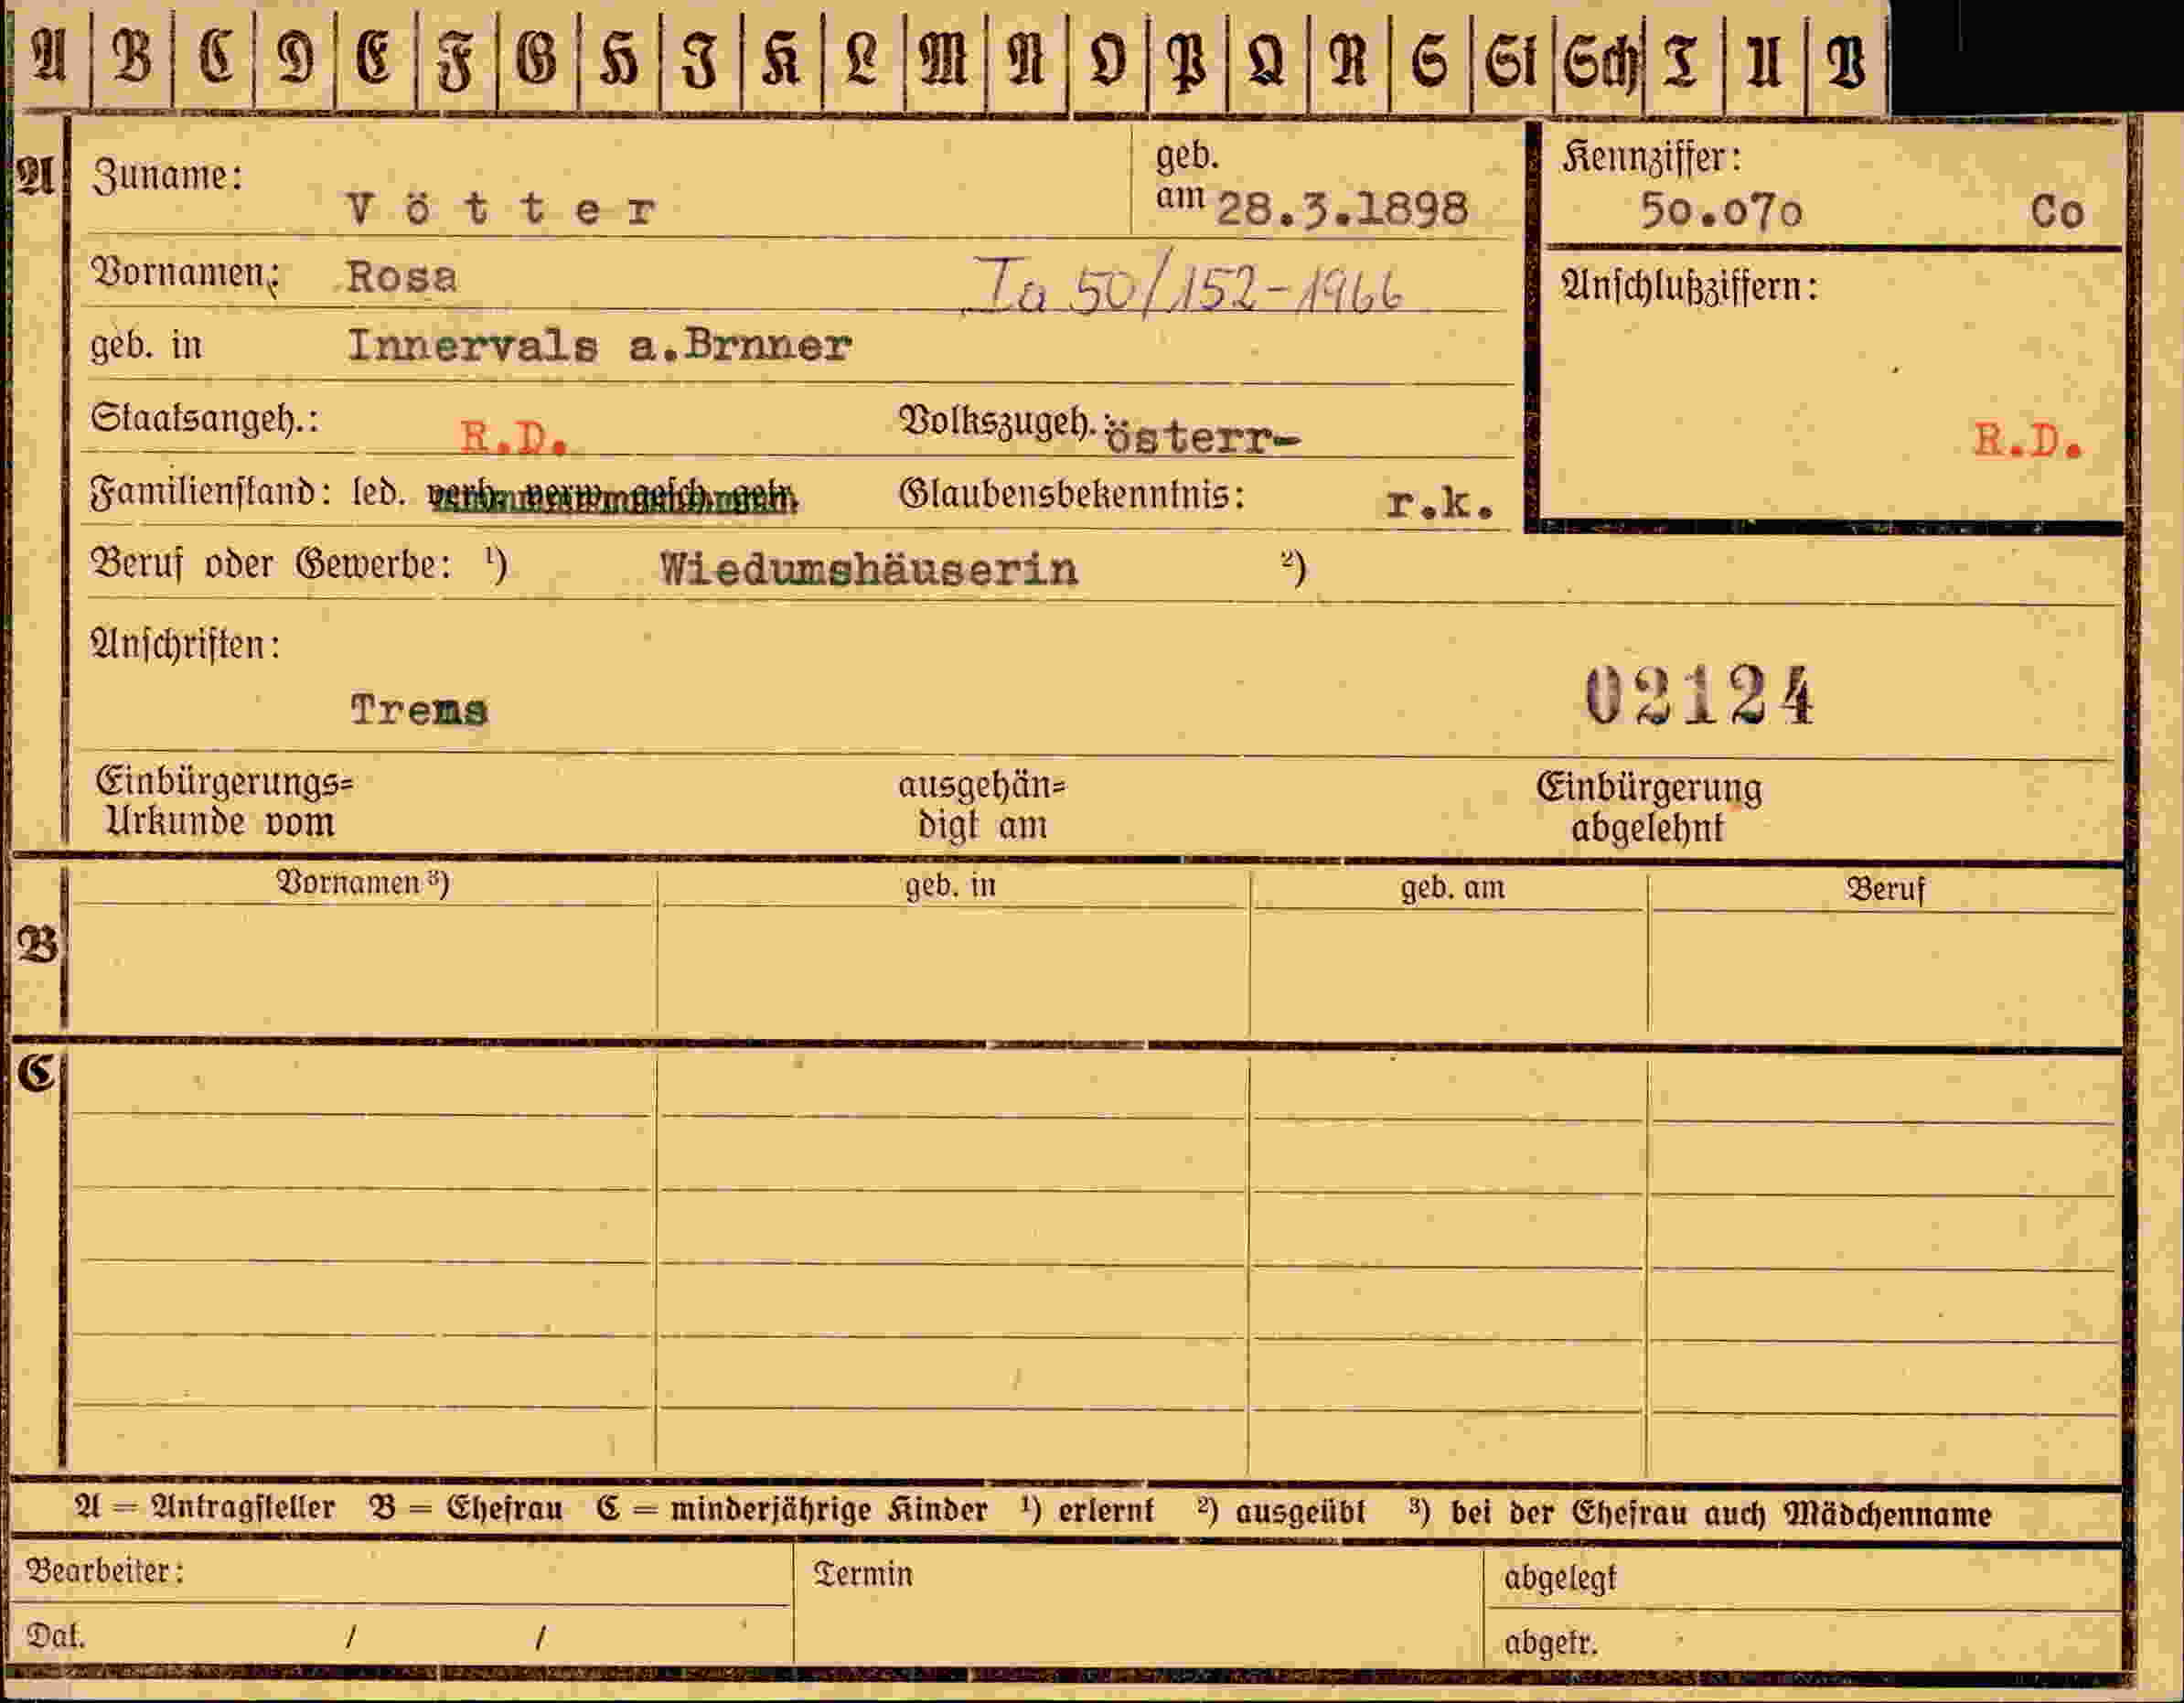 A B C D E F G H I K L M N O P Q R S St Sch T U V
A Zuname: Vötter geb. am 28.3.1898 Kennziffer: 50.070 Co
Vornamen: Rosa Ia 50/152-1966 Anschlußziffern:
geb. in Innervals a.Brnner
Staatsangeh.: R.D. Volkszugeh.: österr- R.D.
Familienstand: led. verh. verw. gesch. getr. Glaubensbekenntnis: r.k.
Beruf oder Gewerbe: ¹) Wiedumshäuserin ²)
Anschriften:
Trems 02124
Einbürgerungs= ausgehän= Einbürgerung
Urkunde vom digt am abgelehnt
B Vornamen ³) geb. in geb. am Beruf
C
A = Antragsteller B = Ehefrau C = minderjährige Kinder ¹) erlernt ²) ausgeübt ³) bei der Ehefrau auch Mädchenname
Bearbeiter: Termin abgelegt
Dat. / / abgetr.